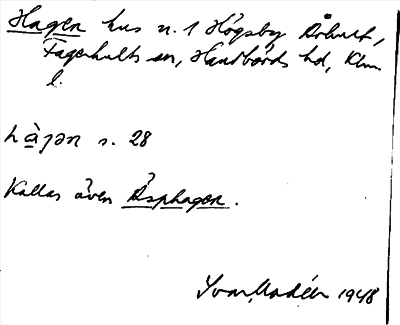 Hagen hus n. 1 Högsby Århult,
Fagerhults sn, Handbörds hd, Klm
l.
hàgən s. 28
Kallas även Åsphagen.
Ivar Modéer 1948